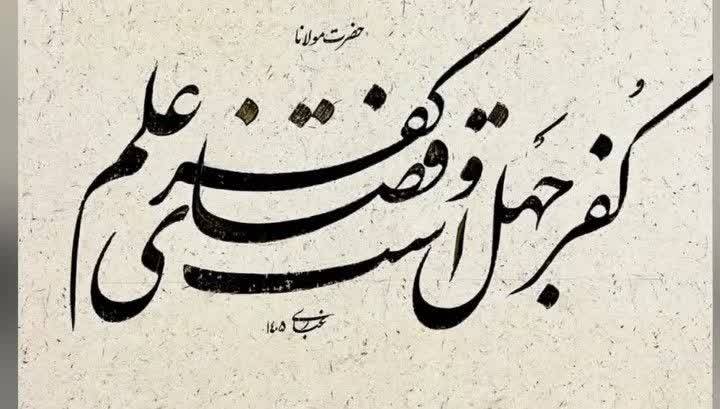 حضرت مولانا
کُفر جَهل است و قضای کفر علم
۱۴۰۵